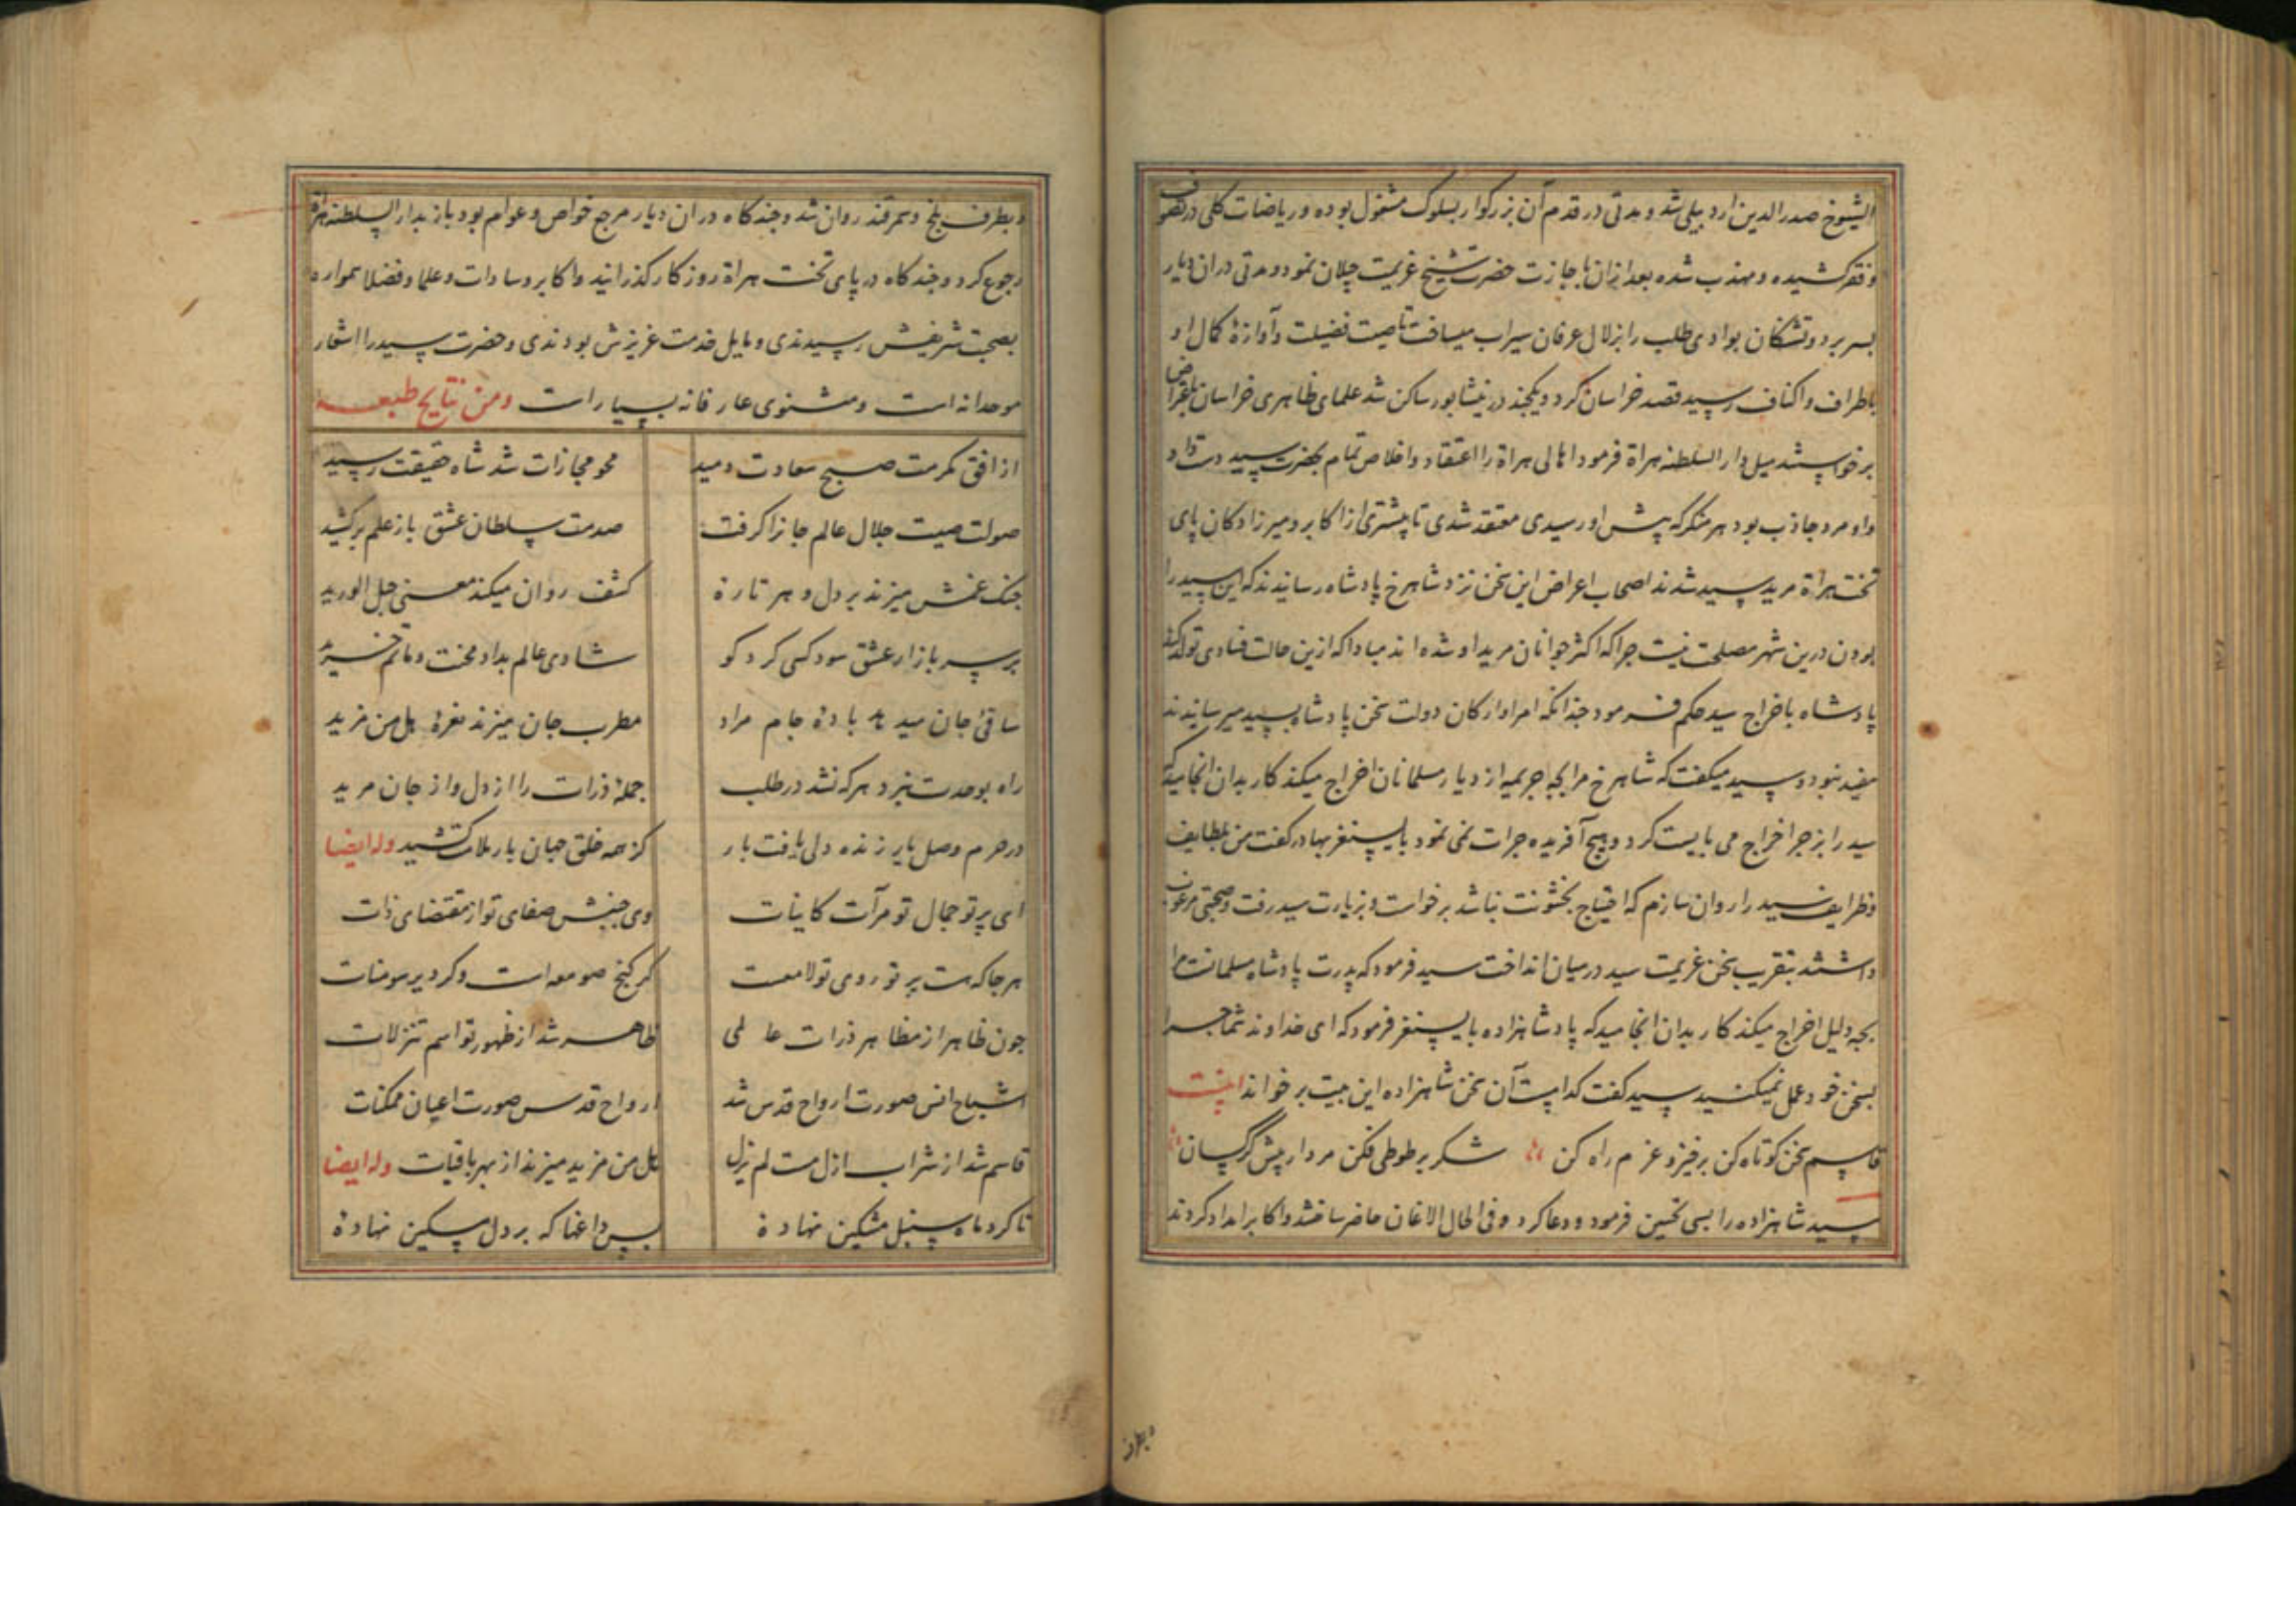 الشیوخ صدرالدین اردبیلی شد و مدتی در قدم آن بزرکوار بسلوک مشغول بوده و ریاضات کلی در تصوف
و فقر کشیده و مهذب شده بعد ازان باجازت حضرت شیخ عزیمت جیلان نمود و مدتی دران دیار
بسر برد و تشنکان بوادی طلب را بزلال عرفان سیراب میساخت تا صیت فضیلت و آوازهٔ کمال او
باطراف و اکناف رسید قصد خراسان کرد و یکجند در نیشابور ساکن شد علمای ظاهری خراسان باعتراض
برخواستند میل دار السلطنه هراة فرمود اهالی هراة را اعتقاد و اخلاص تمام بحضرت سید دست داد
و او مرد جاذب بود هر منکر که پیش او رسیدی معتقد شدی تا پیشتری از اکابر و میرزادکان پای
تخت هراة مرید سید شدند اصحاب اعراض این سخن نزد شاهرخ پادشاه رسانیدند که این سید را
بودن درین شهر مصلحت نیست جراکه اکثر جوانان مرید او شده اند مبادا که ازین حالت فسادی تولد کند
پادشاه باخراج سید حکم فرمود جندانکه امرا و ارکان دولت سخن پادشاه بسید میرسانیدند
مفید نبود و سید میکفت که شاهرخ مرا بجه جریمه از دیار مسلمانان اخراج میکند کار بدان انجامید که
سید را بزجر اخراج می بایست کرد و هیچ آفریده جرات نمی نمود بایسنغر بهادر کفت من بلطایف
و ظرایف سید را روان سازم که احتیاج بخشونت نباشد برخواست و بزیارت سید رفت و صحبتی مرغوب
داشتند بتقریب سخن عزیمت سید درمیان انداخت سید فرمود که پدرت پادشاه مسلمانست مرا
بجه دلیل اخراج میکند کار بدان انجامید که پادشاهزاده بایسنغر فرمود که ای خداوند شما جرا
بسخن خود عمل نمیکنید سید کفت کدامست آن سخن شاهزاده این بیت بر خواند
قاسم سخن کوتاه کن برخیز و عزم راه کن شکر بر طوطی فکن مردار پیش کرکسان
سید شاهزاده را بسی تحسین فرمود و دعا کرد و فی الحال الاغان حاضر ساختند و اکابر امداد کردند
و بطرف
و بطرف بلخ و سمرقند روان شد و جندکاه دران دیار مرجع خواص و عوام بود باز بدار السلطنه هراة
رجوع کرد و جندکاه در پای تخت هراة روزکار کذرانید و اکابر و سادات و علما و فضلا همواره
بصحبت شریفش رسیدندی و مایل خدمت عزیزش بودندی و حضرت سید را اشعار
موحدانه است و مثنوی عارفانه بسیار است ومن نتایج طبعه
از افق مکرمت صبح سعادت دمید محو مجازات شد شاه حقیقت رسید
صولت صیت جلال عالم جانرا کرفت صدمت سلطان عشق باز علم برکشید
جنک غمش میزند بر دل و هر تارهٔ کشف روان میکند معنی حبل الورید
بر سر بازار عشق سود کسی کرد کو شادی عالم بداد محنت و ماتم خرید
ساقی جان میدهد بادهٔ جام مراد مطرب جان میزند نغرهٔ هل من مزید
راه بوحدت نبرد هر که نشد در طلب جملهٔ ذرات را از دل و از جان مرید
در حرم وصل یار زنده دلی یافت بار کز همه خلق جهان بار ملامت کشید وله ایضا
ای پرتو جمال تو مرآت کاینات وی جنبش صفای تو از مقتضای ذات
هر جا که هست پرتو روی تو لامعست کر کنج صومعه است و کر دیر سومنات
جون ظاهر از مظاهر ذرات عالمی ظاهر شد از ظهور تو اسم تنزلات
اشباح انس صورت ارواح قدس شد ارواح قدس صورت اعیان ممکنات
قاسم شد از شراب ازل مست لم یزل هل من مزید میزند از بهر باقیات وله ایضا
تا کرد ماه سنبل مشکین نهادهٔ بس داغها که بر دل مسکین نهادهٔ